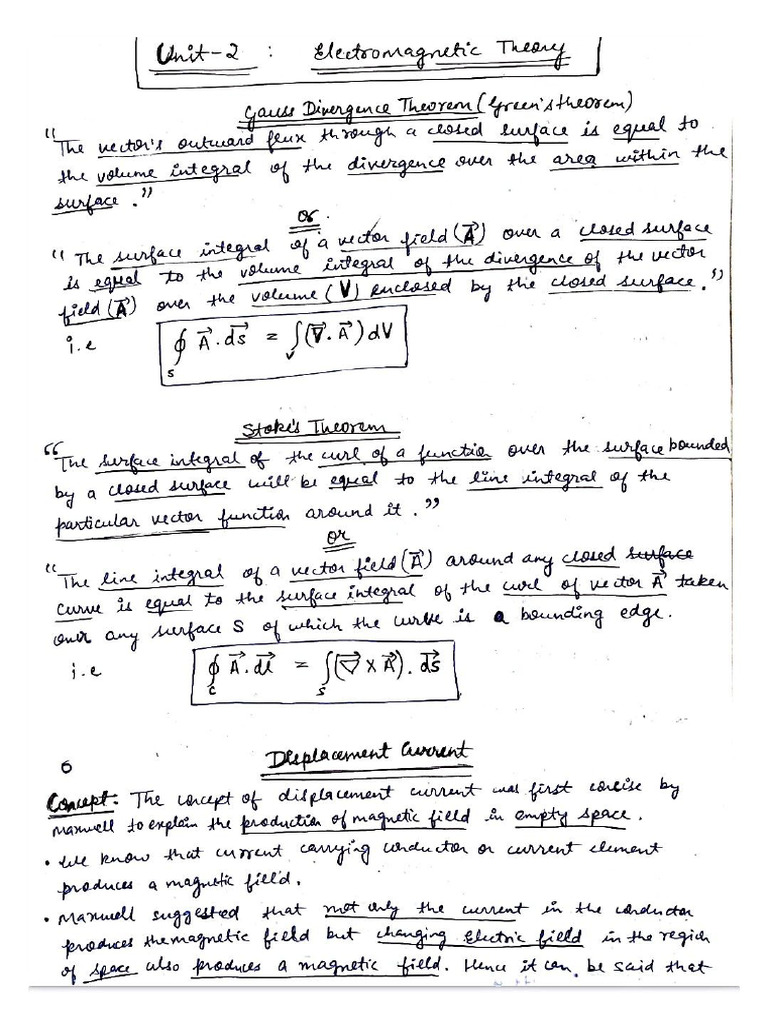 Unit-2 : Electromagnetic Theory
Gauss Divergence Theorem (Green's theorem)
"The vector's outward flux through a closed surface is equal to
the volume integral of the divergence over the area within the
surface."
or
"The surface integral of a vector field (A⃗) over a closed surface
is equal to the volume integral of the divergence of the vector
field (A⃗) over the volume (V) enclosed by the closed surface."
i.e ∮_S A⃗.ds⃗ = ∫_V (∇⃗.A⃗) dV
Stoke's Theorem
"The surface integral of the curl of a function over the surface bounded
by a closed surface will be equal to the line integral of the
particular vector function around it."
or
"The line integral of a vector field (A⃗) around any closed surface
curve is equal to the surface integral of the curl of vector A⃗ taken
over any surface S of which the curve is a bounding edge.
i.e ∮_C A⃗.dl⃗ = ∫_S (∇⃗ × A⃗).ds⃗
Displacement Current
Concept: The concept of displacement current was first concise by
Maxwell to explain the production of magnetic field in empty space.
• We know that current carrying conductor or current element
produces a magnetic field.
• Maxwell suggested that not only the current in the conductor
produces the magnetic field but changing Electric field in the region
of space also produces a magnetic field. Hence it can be said that